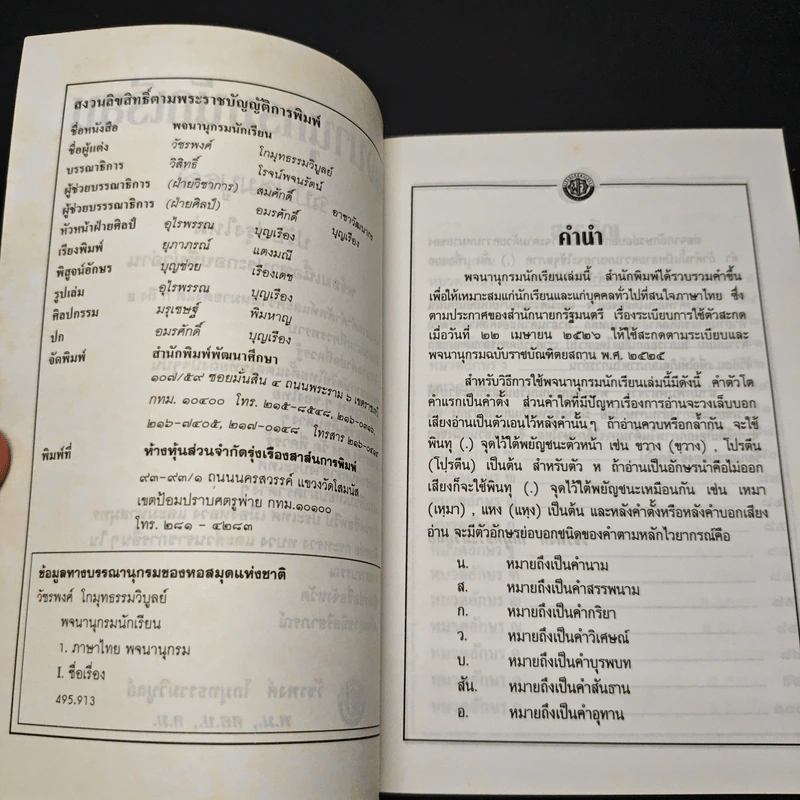 สงวนลิขสิทธิ์ตามพระราชบัญญัติการพิมพ์
ชื่อหนังสือ พจนานุกรมนักเรียน
ชื่อผู้แต่ง วัชรพงศ์ โกมุทธรรมวิบูลย์
บรรณาธิการ วิสิทธิ์ โรจน์พจนรัตน์
ผู้ช่วยบรรณาธิการ (ฝ่ายวิชาการ) สมศักดิ์ อาชาวัฒนากร
ผู้ช่วยบรรรณาธิการ (ฝ่ายศิลป์) อมรศักดิ์ บุญเรือง
หัวหน้าฝ่ายศิลป์ อุไรพรรณ บุญเรือง
เรียงพิมพ์ ยุภาภรณ์ แดงมณี
พิสูจน์อักษร บุญช่วย เรืองเดช
รูปเล่ม อุไรพรรณ บุญเรือง
ศิลปกรรม มรุเชษฐ์ พิมหาญ
ปก อมรศักดิ์ บุญเรือง
จัดพิมพ์ สำนักพิมพ์พัฒนาศึกษา
๑๐๗/๕๙ ซอยมั่นสิน ๔ ถนนพระราม ๖ เขตราชเทวี
กทม. ๑๐๔๐๐ โทร. ๒๑๕-๘๕๔๘,
๒๑๖-๗๔๐๕, ๒๑๗-๐๑๔๘ โทรสาร
พิมพ์ที่ ห้างหุ้นส่วนจำกัดรุ่งเรืองสาส์นการพิมพ์
๙๓-๙๓/๑ ถนนนครสวรรค์ แขวงวัดโสมนัส
เขตป้อมปราบศตรูพ่าย กทม.๑๐๑๐๐
โทร. ๒๘๑ - ๔๒๘๓
ข้อมูลทางบรรณานุกรมของหอสมุดแห่งชาติ
วัชรพงศ์ โกมุทธรรมวิบูลย์
พจนานุกรมนักเรียน
1. ภาษาไทย พจนานุกรม
I. ชื่อเรื่อง
495.913
คำนำ
พจนานุกรมนักเรียนเล่มนี้ สำนักพิมพ์ได้รวบรวมคำขึ้น
เพื่อให้เหมาะสมแก่นักเรียนและแก่บุคคลทั่วไปที่สนใจภาษาไทย ซึ่ง
ตามประกาศของสำนักนายกรัฐมนตรี เรื่องระเบียบการใช้ตัวสะกด
เมื่อวันที่ ๒๒ เมษายน ๒๕๒๖ ให้ใช้สะกดตามระเบียบและ
พจนานุกรมฉบับราชบัณฑิตยสถาน พ.ศ. ๒๕๒๕
สำหรับวิธีการใช้พจนานุกรมนักเรียนเล่มนี้มีดังนี้ คำตัวโต
คำแรกเป็นคำตั้ง ส่วนคำใดที่มีปัญหาเรื่องการอ่านจะวงเล็บบอก
เสียงอ่านเป็นตัวเอนไว้หลังคำนั้นๆ ถ้าอ่านควบหรือกล้ำกัน จะใช้
พินทุ (.) จุดไว้ใต้พยัญชนะตัวหน้า เช่น ขวาง (ขฺวาง) , โปรตีน
(โปฺรตีน) เป็นต้น สำหรับตัว ห ถ้าอ่านเป็นอักษรนำคือไม่ออก
เสียงก็จะใช้พินทุ (.) จุดไว้ใต้พยัญชนะเหมือนกัน เช่น เหมา
(เหฺมา) , แหง (แหฺง) เป็นต้น และหลังคำตั้งหรือหลังคำบอกเสียง
อ่าน จะมีตัวอักษรย่อบอกชนิดของคำตามหลักไวยากรณ์คือ
น. หมายถึงเป็นคำนาม
ส. หมายถึงเป็นคำสรรพนาม
ก. หมายถึงเป็นคำกริยา
ว. หมายถึงเป็นคำวิเศษณ์
บ. หมายถึงเป็นคำบุรพบท
สัน. หมายถึงเป็นคำสันธาน
อ. หมายถึงเป็นคำอุทาน